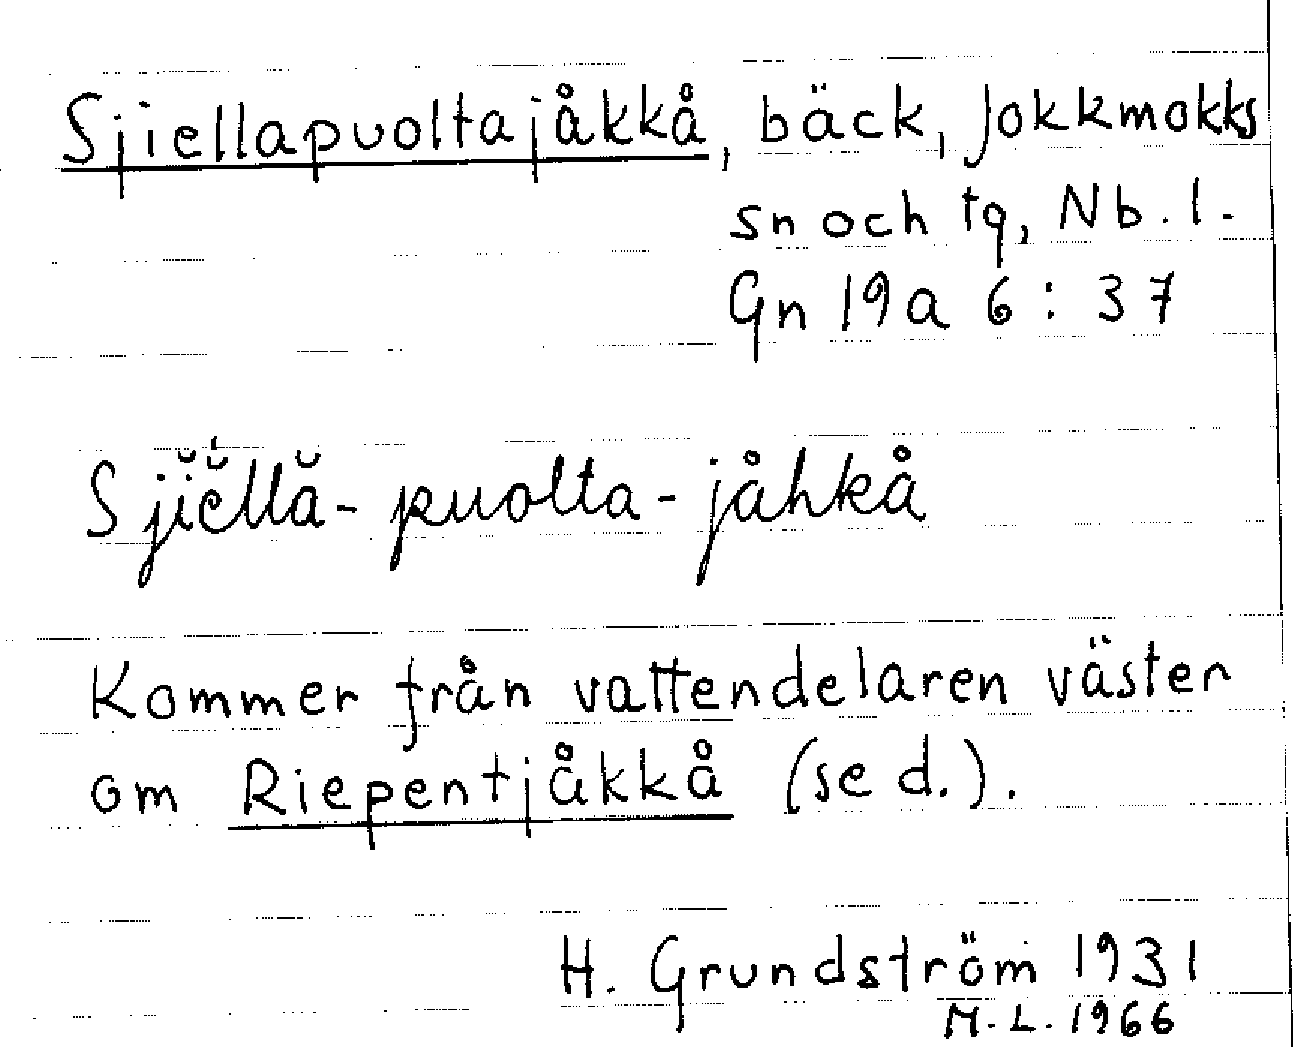 Sjiellapuoltajåkkå, bäck, Jokkmokks
sn och tg, Nb. l.
Gn 19a 6:37
Sjĭĕ́llă-puolta-jåhkå
Kommer från vattendelaren väster
om Riepentjåkkå (se d.).
H. Grundström 1931
M.L. 1966